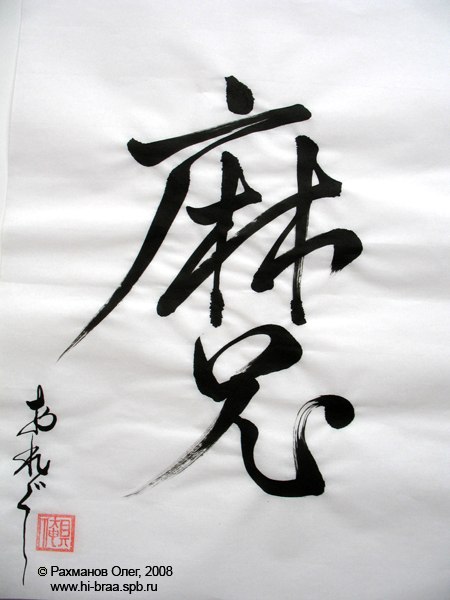 麻兄
おれぐ
© Рахманов Олег, 2008
www.hi-braa.spb.ru